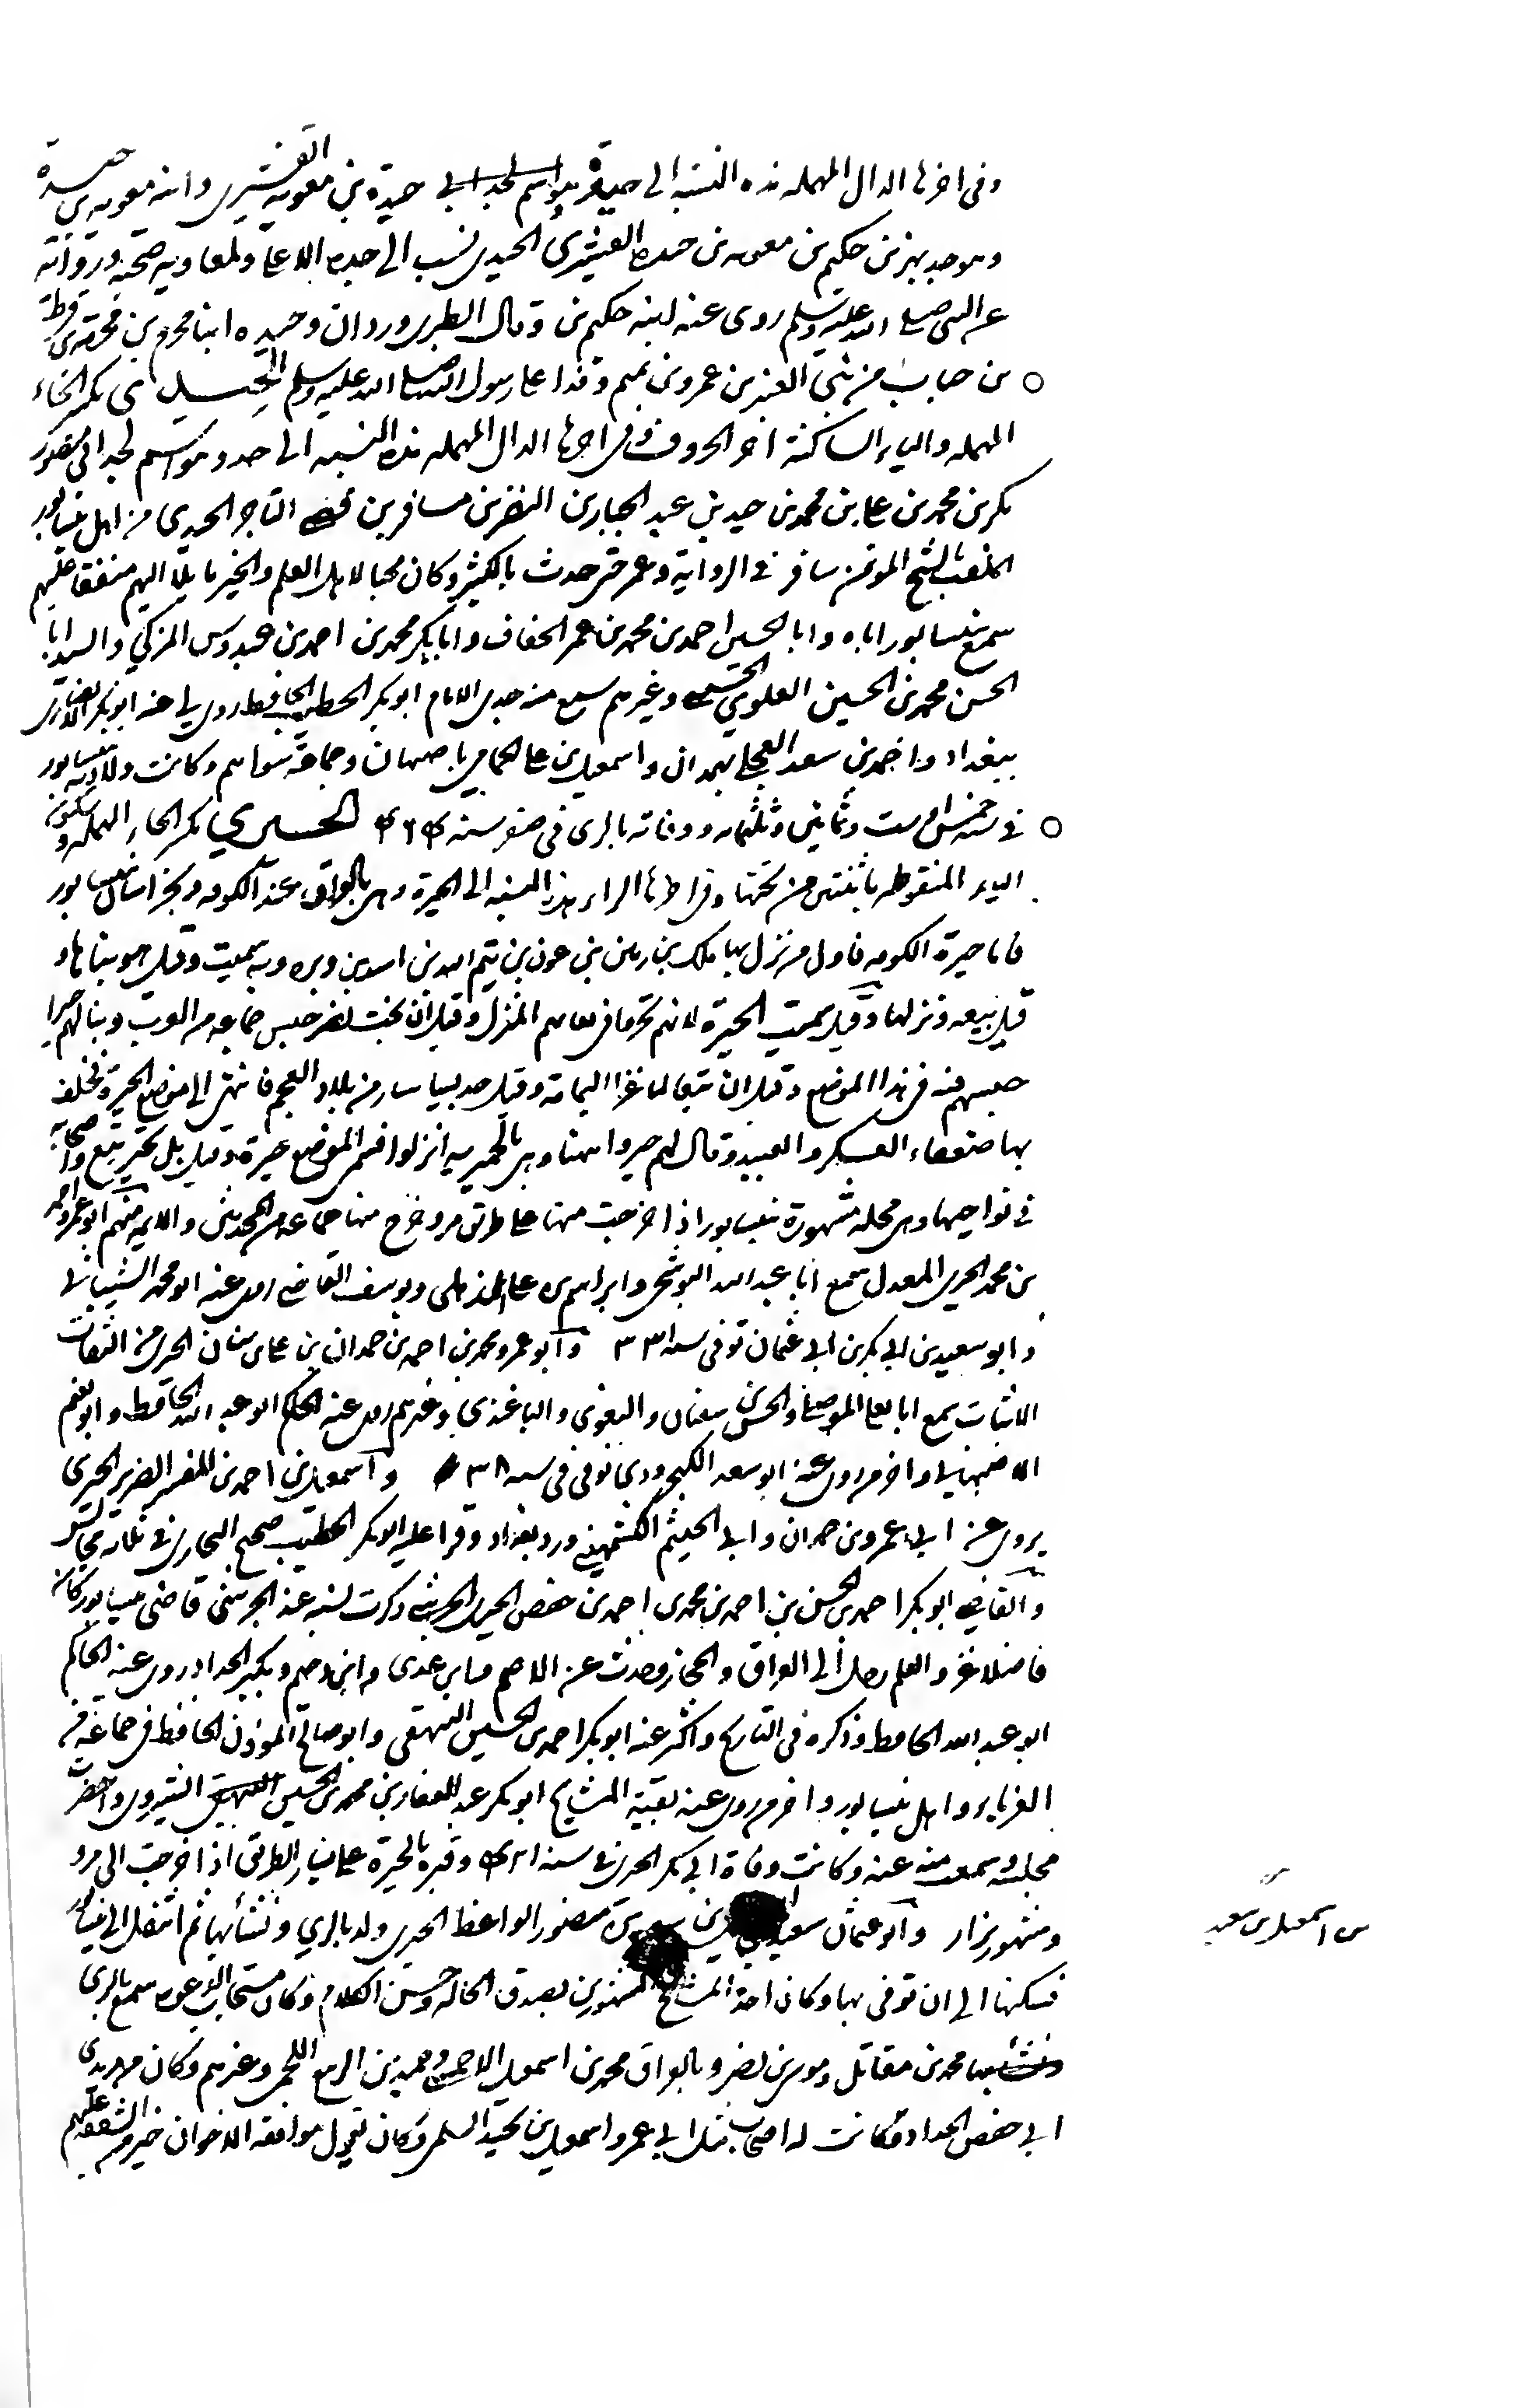 وفي اخرها الدال المهمله هذه النسبة الى حيدة وهو اسم لجد ابي حيدة بن معوية القشيري وابنه معويه بن حيدة
وهو جد بهز بن حكيم بن معويه بن حيده القشيري الحيدي نسب الى جده الاعلى ولمعاويه صحبة ورواية
عن النبي صلى الله عليه وسلم روى عنه ابنه حكيم بن وقال الطبري وردان وحيده ابنا مخرم بن مخرمة بن قرط
بن جناب من بني العنبر بن عمرو بن تميم وفدا على رسول الله صلى الله عليه وسلم الحيدي بكسر الحاء
المهمله والياء الساكنة اخر الحروف وفي اخرها الدال المهمله هذه النسبه الى حيد وهو اسم لجد ابي منصور
بكر بن محمد بن علي بن محمد بن حيد بن عبد الجبار بن النضر بن مسافر بن قصي التاجر الحيدي من اهل نيسابور
الملقب بالشيخ المؤتمن سافر في الرواية وعمر حتى حدث بالكثير وكان محبا لاهل العلم والخير مايلا اليهم منفقا عليهم
سمع بنيسابور اباه وابا الحسين احمد بن محمد بن عمر الخفاف وابا بكر محمد بن احمد بن عبدوس المزكي والسيد ابا
الحسن محمد بن الحسين العلوي الحسني وغيرهم سمع منه جدي الامام ابو بكر الخطيب الحافظ روى لي عنه ابو بكر الانصاري
ببغداد واحمد بن سعد العجلي بهمدان واسمعيل بن علي الحمامي باصبهان وجماعة سواهم وكانت ولادته بنيسابور
في سنه خمس او ست وثمانين وثلثمايه ووفاته بالري في صفر سنه ٤٦٤ الحيري بكسر الحاء المهمله وسكون
الياء المنقوطه باثنتين من تحتها وفي اخرها الراء هذه النسبه الى الحيرة وهي بالعراق عند الكوفه وبخراسان بنيسابور
فاما حيرة الكوفه فاول من نزل بها ملك بن زهير بن عون بن تيم الله بن اسد بن وبره وبه سميت وقيل هو بناها و
قيل ربيعه ونزلها وقيل سميت الحيرة لانهم تحروا في بعدهم المنزل وقيل ان بخت نصر حبس جماعه من العرب وبنا لهم حيرا
حبسهم فيه في هذا الموضع وقيل ان تبعا لما غزا اليمامة وقيل سار من بلاد العجم فانتهى الى موضع الحيرة فخلف
بها ضعفاء العسكر والعبيد وقال لهم حيروا ههنا وهي بالحميريه انزلوا فسمي الموضع حيرة وقيل بل تحير تبع واصحابه
في نواحيها وهي محله مشهورة بنيسابور اذا خرجت منها على طريق مرو خرج منها جماعه من المحدثين والايمه منهم ابو عمرو احمد
بن محمد الحيري المعدل سمع ابا عبد الله البوشنجي وابراهيم بن علي الذهلي ويوسف القاضي روى عنه ابو محمد الشيباني
وابو سعيد بن ابي بكر بن ابي عثمان توفي سنه ٣٣١ وابو عمرو محمد بن احمد بن حمدان بن علي بن سنان الحيري من الثقات
الاثبات سمع ابا يعلى الموصلي والحسن بن سفيان والبغوي والباغندي وغيرهم روى عنه الحاكم ابو عبد الله الحافظ وابو نعيم
الاصبهاني واخر من روى عنه ابو سعد الكنجرودي توفي في سنه ٣٨ واسمعيل بن احمد المفسر الضرير الحيري
يروي عن ابي عمرو بن حمدان وابي الهيثم الكشميهني ورد بغداد وقرا عليه ابو بكر الخطيب صحيح البخاري في ثلثه مجالس
والقاضي ابو بكر احمد بن الحسن بن احمد بن محمد بن احمد بن حفص الحيري الحرشي ذكرت نسبه عند الحرشي قاضي نيسابور كان
فاضلا غزير العلم رحل الى العراق والحجاز وحدث عن الاصم وابن عدي وابن دحيم وبكير الحداد روى عنه الحاكم
ابو عبد الله الحافظ وذكره في التاريخ واكثر عنه ابو بكر احمد بن الحسين البيهقي وابو صالح المؤذن الحافظ في جماعة من
الغرباء واهل نيسابور واخر من روى عنه بقية المشايخ ابو بكر عبد الغفار بن محمد بن الحسين البيهقي الشيروي واحضرت
مجلسه وسمعت منه عنه وكانت وفاة ابي بكر الحيري في سنه ٤٢١ وقبره بالحيرة على يسار الطريق اذا خرجت الى مرو
ومشهور يزار وابو عثمان سعيد بن منصور الواعظ الحيري ولد بالري ونشأ بها ثم انتقل الى نيسابور
فسكنها الى ان توفي بها وكان احد المشايخ المشهورين بصدق الحاله وحسن الكلام وكان مستجاب الدعوه سمع بالري
محمد بن مقاتل وموسى بن نصر وبالعراق محمد بن اسمعيل الاحمسي وحميد بن الربيع اللخمي وغيرهم وكان من مريدي
ابي حفص الحداد وكانت له اصحاب مثل ابي عمرو اسمعيل بن نجيد السلمي وكان يقول موافقه الاخوان خير من الشفقة عليهم
بن اسمعيل بن سعيد